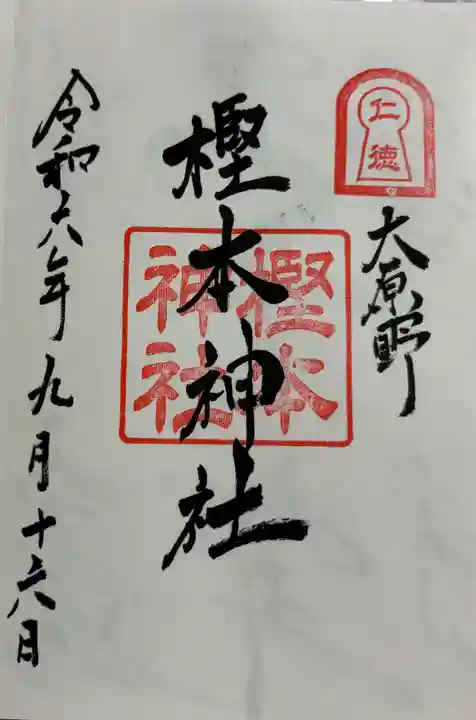 仁徳
大原野
樫本神社
樫本
神社
令和六年九月十六日